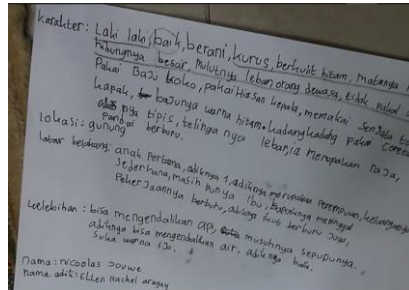 Karakter: Laki laki, baik, berani, kurus, berkulit hitam, matanya
hidungnya besar, mulutnya lebar, orang dewasa, tidak pakai
Pakai Baju koko, pakai Hiasan kepala, memakai Senjata
kapak, bajunya warna hitam. kadang kadang pakai
alis nya tipis, telinga nya lebar, ia merupakan raja,
pandai berburu.
lokasi: gunung
latar belakang: anak Pertama, adiknya 1, adiknya merupakan perempuan,
sederhana, masih punya ibu, bapaknya meninggal
Pekerjaannya berburu, adiknya ikut berburu juga,
kelebihan: bisa mengendalikan api, musuhnya sepupunya.
adiknya bisa mengendalikan air, adiknya baik.
Suka warna ijo.
nama: nicolas Jouwe
nama adik: Ellen rachel